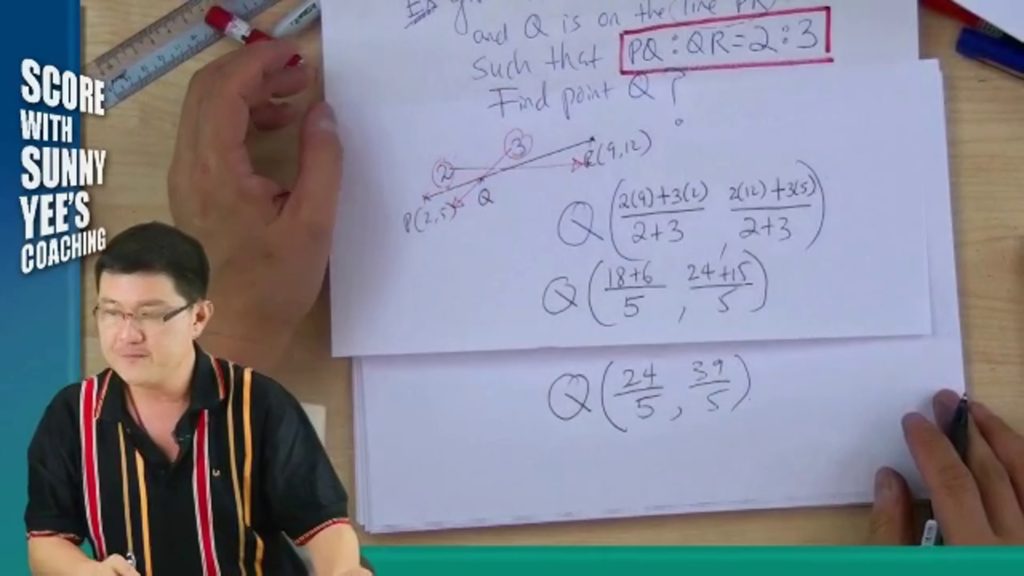 SCORE
WITH
SUNNY
YEE'S
COACHING
and Q is on the line PR
such that PQ : QR = 2 : 3
Find point Q ?
3
2
R(9,12)
Q
P(2,5)
Q ( 2(9)+3(2) / 2+3 , 2(12)+3(5) / 2+3 )
Q ( 18+6 / 5 , 24+15 / 5 )
Q ( 24 / 5 , 39 / 5 )